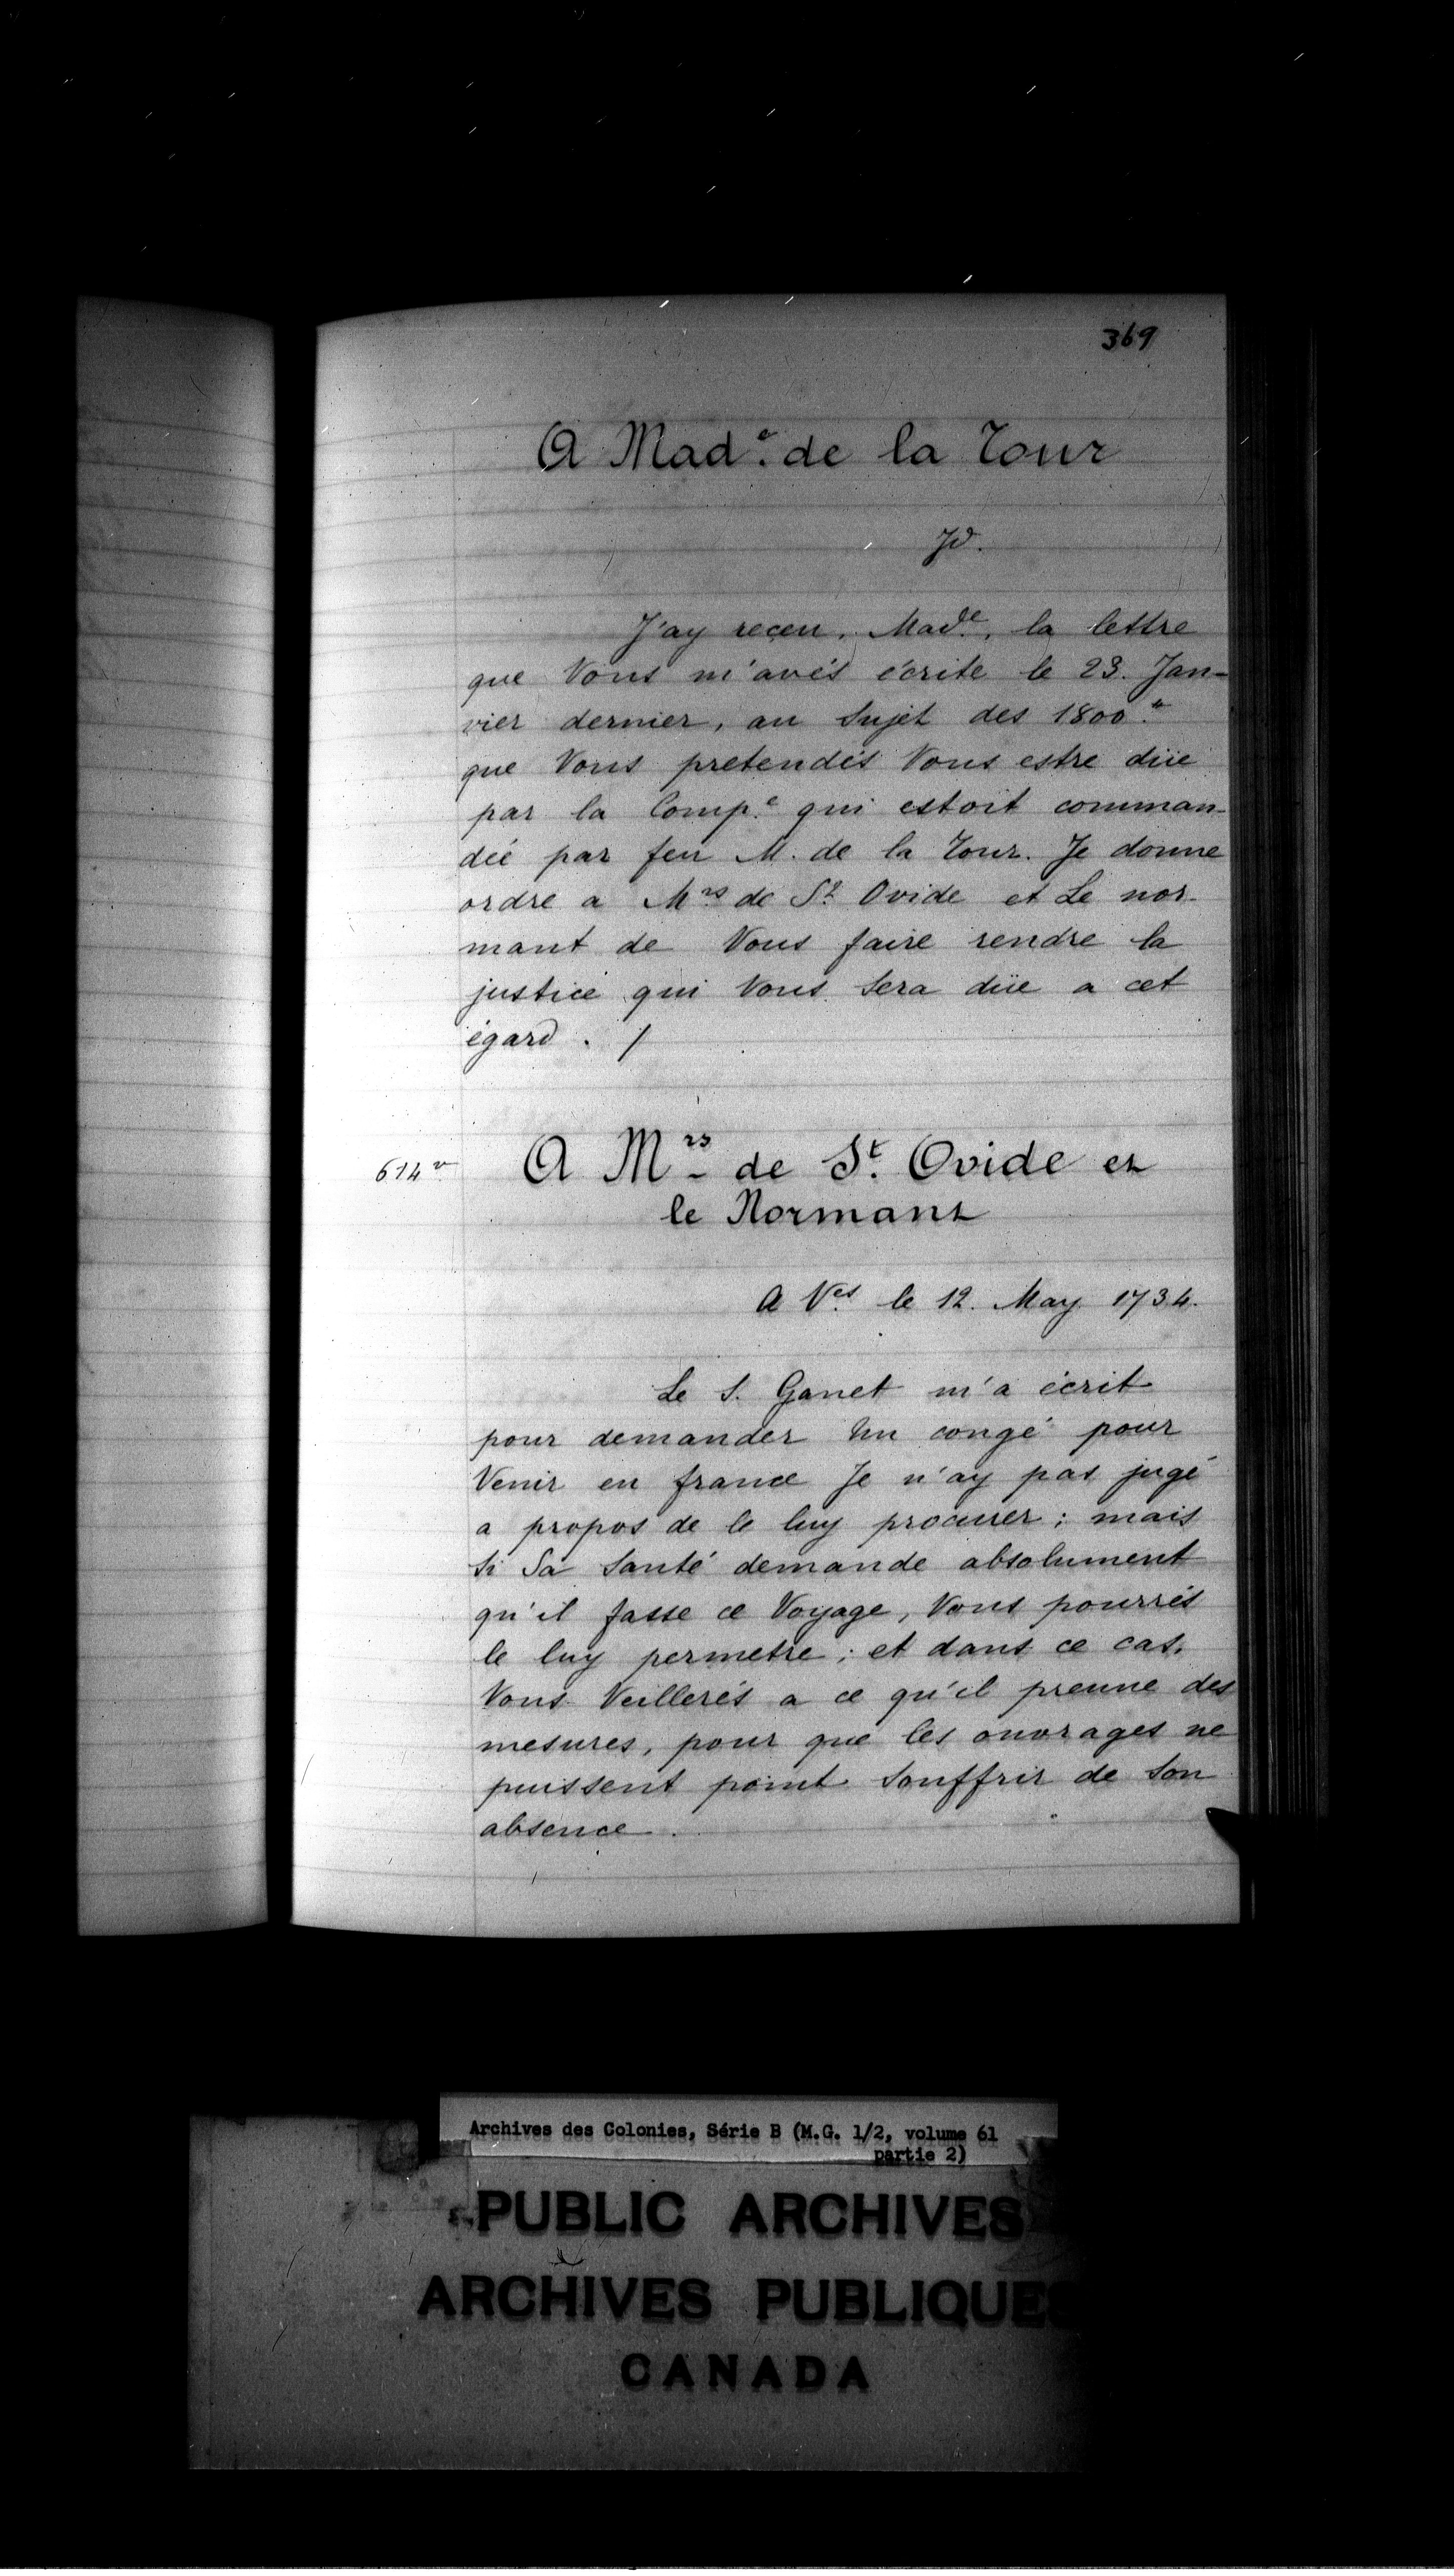 369
A Mad.e de la Tour
Jd.
J'ay reçeu, Mad.e, la lettre
que Vous m'avés écrite le 23. Jan-
vier dernier, au Sujet des 1800.tt
que Vous pretendés Vous estre düe
par la Comp.e qui estoit comman-
dée par feu M. de la Tour. Je donne
ordre a Mrs de St Ovide et Le nor-
mant de Vous faire rendre la
justice qui Vous Sera düe a cet
égard. /
614 v
A Mrs de St. Ovide et
le Normant
A V.es le 12. May 1734.
Le S. Ganet m'a écrit
pour demander Un congé pour
Venir en france Je n'ay pas jugé
a propos de le luy procurer; mais
Si Sa Santé demande absolument
qu'il fasse ce Voyage, Vous pourrés
le luy permetre; et dans ce cas,
Vous Veillerés a ce qu'il prenne des
mesures, pour que les ouvrages ne
puissent point Souffrir de Son
absence.
Archives des Colonies, Série B (M.G. 1/2, volume 61
partie 2)
PUBLIC ARCHIVES
ARCHIVES PUBLIQUES
CANADA